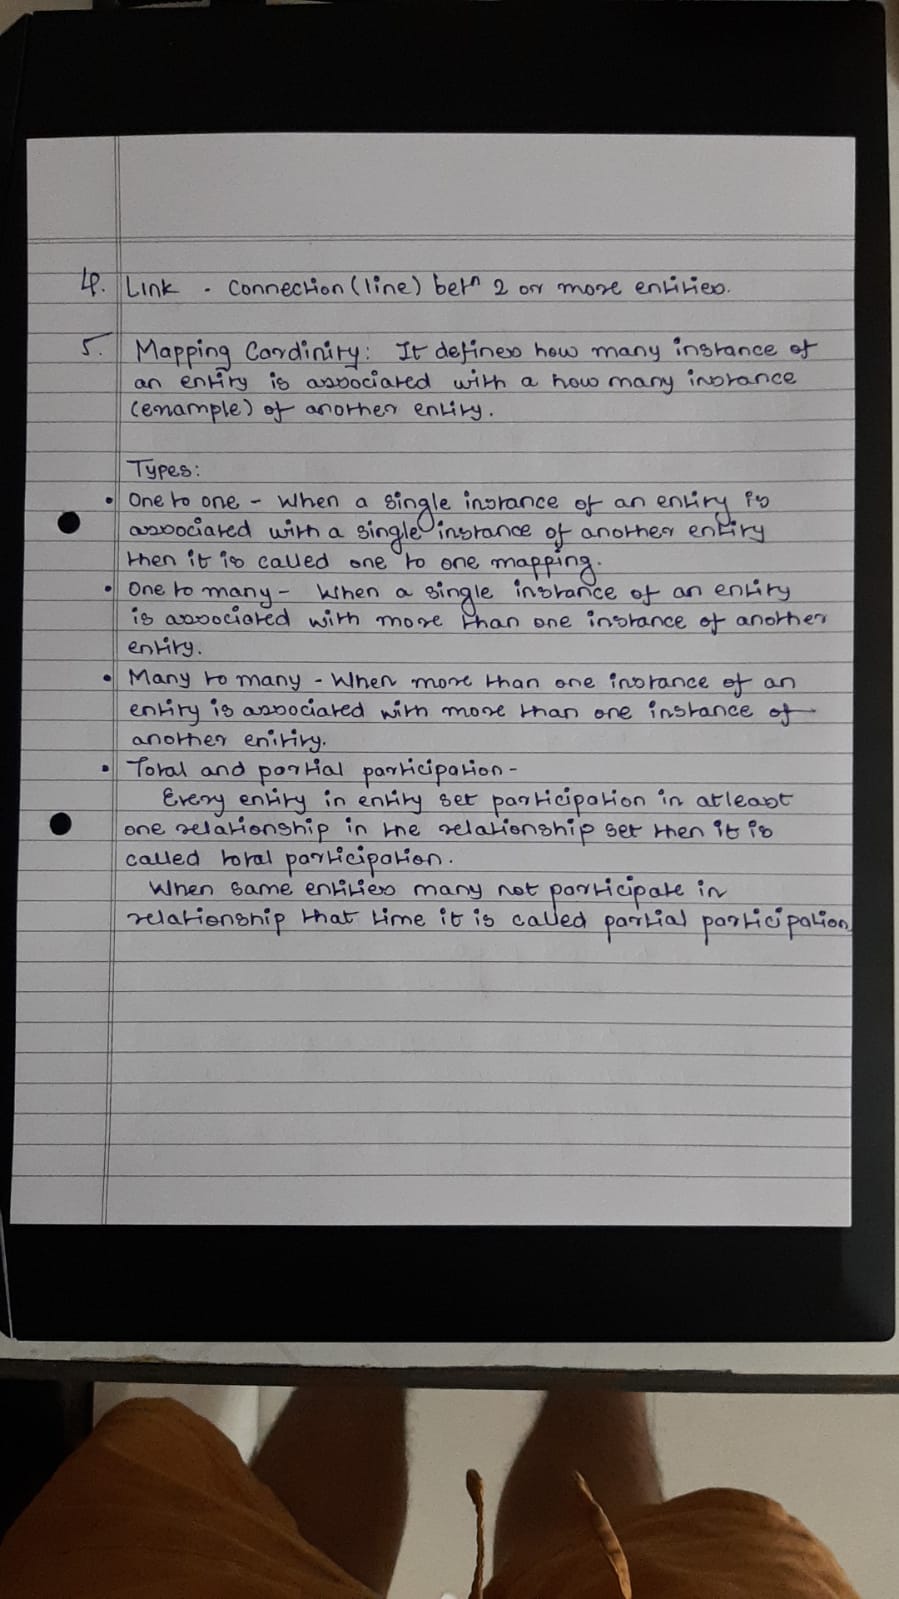 4. Link - Connection (line) betn 2 or more entities.
5. Mapping Cardinity: It defines how many instance of
an entity is associated with a how many instance
(enample) of another entity.
Types:
• One to one - When a single instance of an entity is
associated with a single instance of another entity
then it is called one to one mapping.
• One to many - When a single instance of an entity
is associated with more than one instance of another
entity.
• Many to many - When more than one instance of an
entity is associated with more than one instance of
another enitity.
• Total and partial participation -
Every entity in entity set participation in atleast
one relationship in the relationship set then it is
called total participation.
When same entities many not participate in
relationship that time it is called partial participation